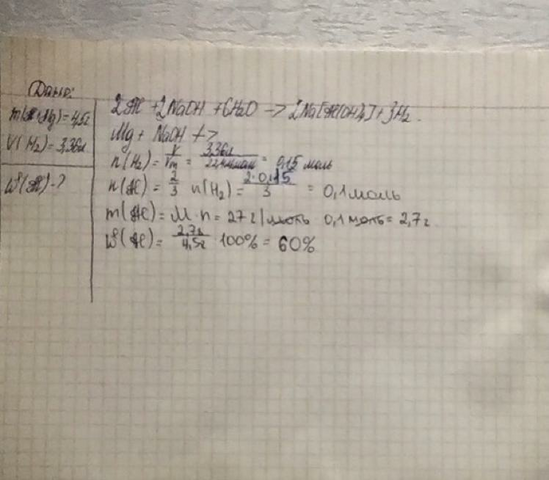 Дано:
m(Al, Mg) = 4,5г
V(H₂) = 3,36л
W(Al) - ?
2Al + 2NaOH + 6H₂O -> 2Na[Al(OH)₄] + 3H₂.
Mg + NaOH +>
n(H₂) = V/Vm = 3,36л/22,4л/моль = 0,15 моль
n(Al) = 2/3 n(H₂) = 2·0,15/3 = 0,1 моль
m(Al) = M · n = 27 г/моль 0,1 моль = 2,7 г
W(Al) = 2,7г/4,5г 100% = 60%